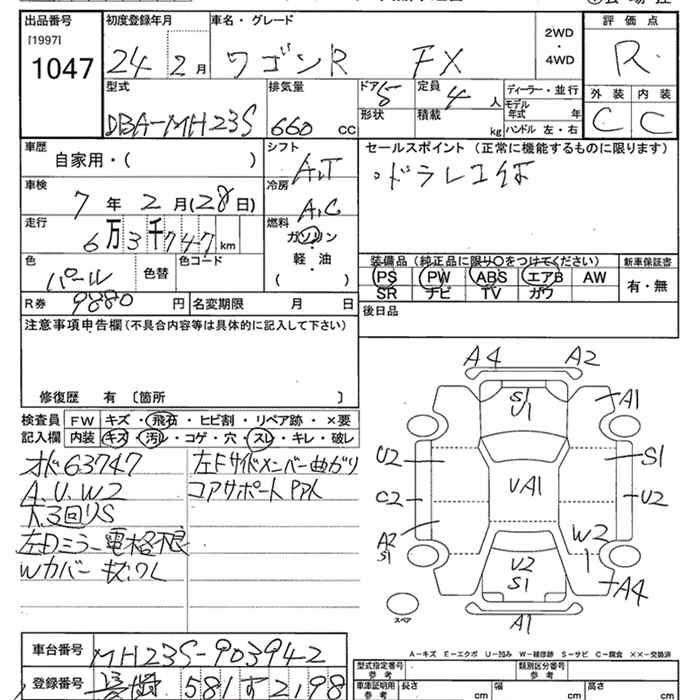 出品番号 初度登録年月 車名・グレード 評価点
[1997] 1047 24 2月 ワゴンR FX 2WD・4WD R
型式 排気量 ドア 5 定員 4人 ディーラー・並行 外装 内装
DBA-MH23S 660 cc 形状 積載 kg モデル年式 年 ハンドル 左・右 C C
車歴 シフト セールスポイント (正常に機能するものに限ります)
自家用・( ) A,T ・ドラレコ付
車検 冷房
7年 2月(28日) A,C
走行 燃料
6万3千747km ガソリン・軽油 ( )
装備品 (純正品に限り○をつけてください) 新車保証書
色 パール 色替 色コード PS PW ABS エアB AW 有・無
SR ナビ TV ガワ
R券 9880円 名変期限 月 日 後日品
注意事項申告欄 (不具合内容等は具体的に記入して下さい)
修復歴 有 〔箇所 〕
検査員 FW キズ・飛石・ヒビ割・リペア跡・×要
記入欄 内装 キズ・汚れ・コゲ・穴・スレ・キレ・破レ
オド63747 左Fサイドメンバー曲がり
A.U.W2 コアサポート
下3回りS
左Dミラー電格不良
Wカバー
A4 A2
S1
U1 A1
U2 S1
C2 VA1 U2
A2
S1 W2
U2
S1 A4
A1
スペア
A-キズ E-エクボ U-凹み W-補修跡 S-サビ C-腐食 ××-交換済
車台番号 MH23S-903942
登録番号 581 す 2198
型式指定番号 参考 類別区分番号 参考
車庫証明用 参考 長さ cm 幅 cm 高さ cm